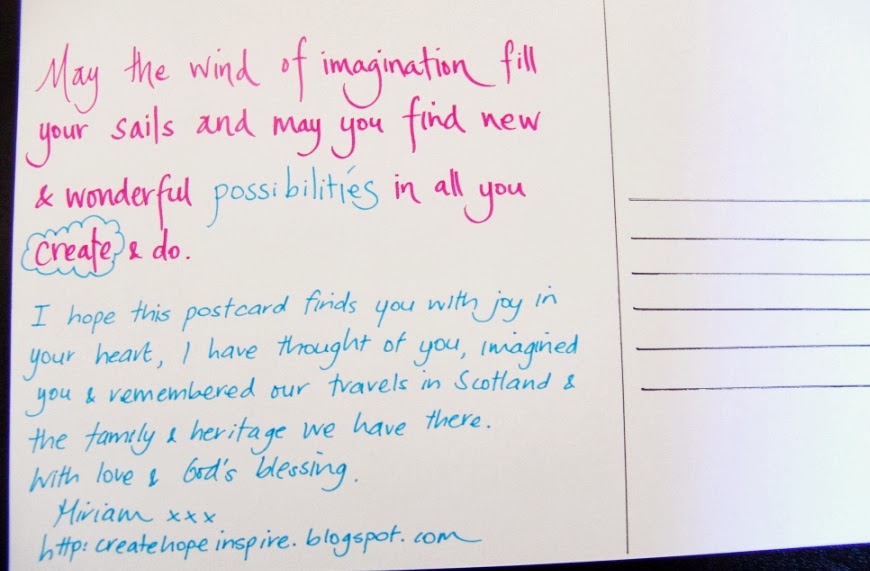 May the wind of imagination fill
your sails and may you find new
& wonderful possibilities in all you
create & do.
I hope this postcard finds you with joy in
your heart, I have thought of you, imagined
you & remembered our travels in Scotland &
the family & heritage we have there.
With love & God's blessing.
Miriam xxx
http: createhopeinspire.blogspot.com